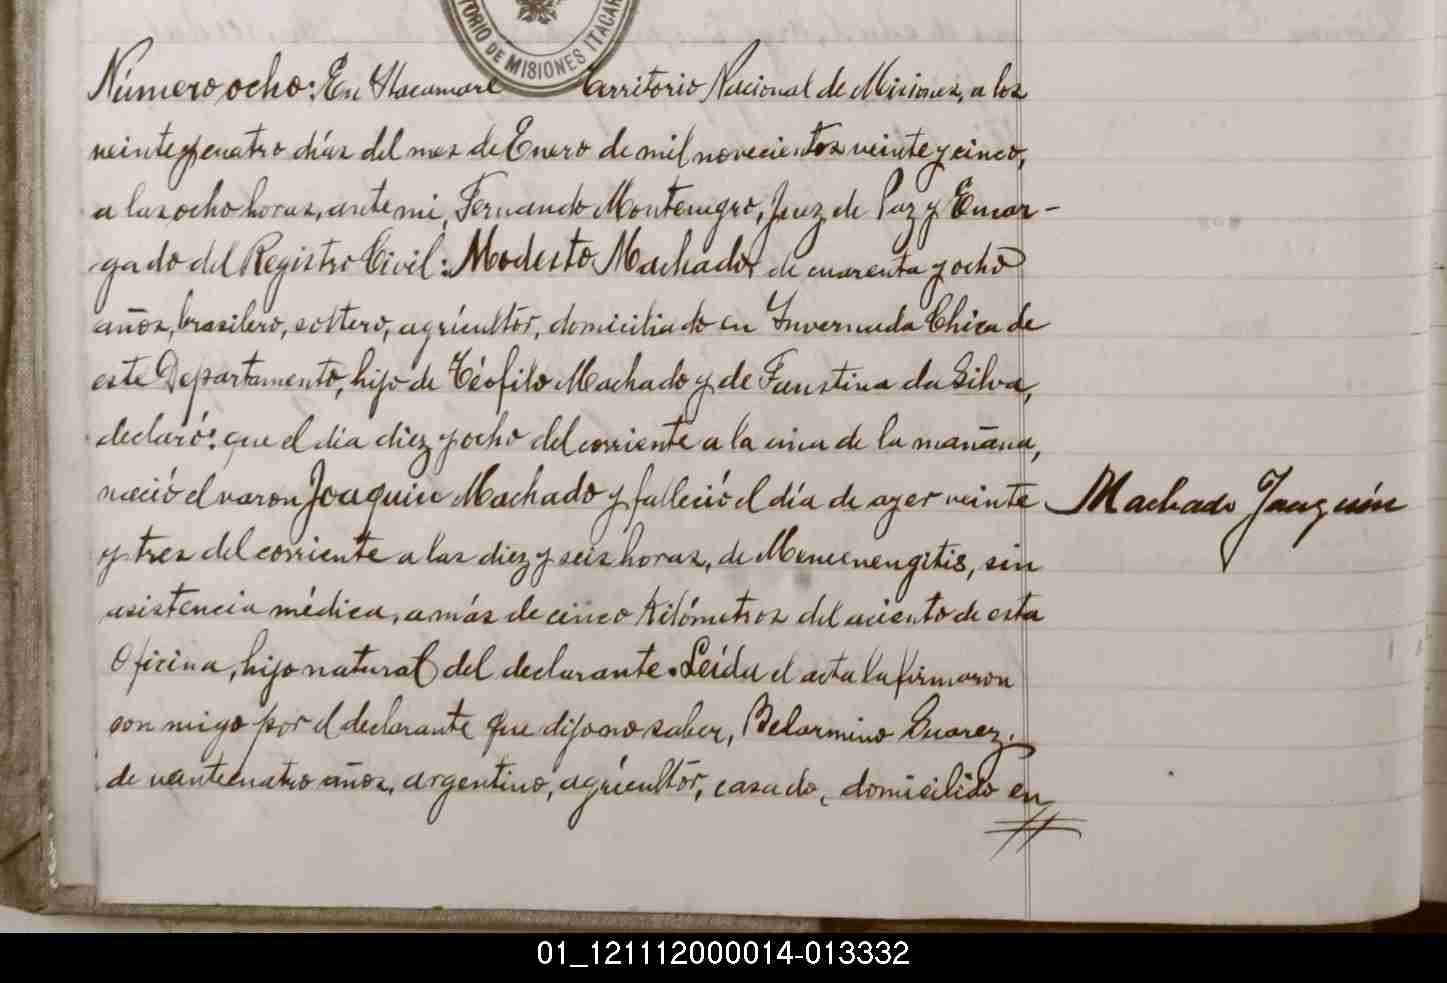 TORIO DE MISIONES ITACAR
Número ocho: En Itacaruaré Territorio Nacional de Misiones, a los
veinte y cuatro días del mes de Enero de mil novecientos veinte y cinco,
a las ocho horas, ante mi, Fernando Montenegro, Juez de Paz y Encar-
gado del Registro Civil: Modesto Machado, de cuarenta y ocho
años, brasilero, soltero, agricultor, domiciliado en Invernada Chica de
este Departamento, hijo de Teófilo Machado y de Faustina da Silva,
declaró: que el día diez y ocho del corriente a la una de la mañana,
nació el varon Joaquin Machado y falleció el día de ayer veinte
Machado Joaquín
y tres del corriente a las diez y seis horas, de sin
asistencia médica, a más de cinco kilómetros del aciento de esta
Oficina, hijo natural del declarante. Leída el acta la firmaron
con migo por el declarante que dijo no saber, Belarmino Suarez,
de años, argentino, agricultor, casado, domicilido en
01_121112000014-013332